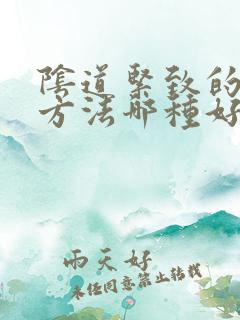 陰道緊致的
方法哪種好
雨天好
未经同意禁止转载